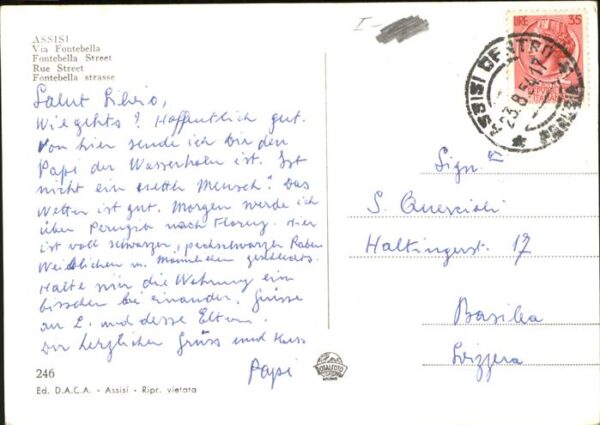 ASSISI
Via Fontebella
Fontebella Street
Rue Street
Fontebella strasse
Salut
Wie gehts? Hoffentlich gut.
Von hier sende ich Dir den
Papi der Wasserholen ist. Ist
nicht ein netter Mensch? Das
Wetter ist gut. Morgen werde ich
über Perugia nach Florenz. Hier
ist voll schwarzer, pechschwarzer Raben
Weiblichen u. Männlichen Geschlechts.
Halte mir die Wohnung ein
bisschen bei einander. Grüsse
an L. und desse Eltern.
Dir herzlichen Gruss und Kuss
Papi
246
Ed. D.A.C.A. - Assisi - Ripr. vietata
I-
LIRE 35
ASSISI
23.8.54.17
Sign.
S. Quercioli
Haltingerst. 17
Basilea
Svizzera